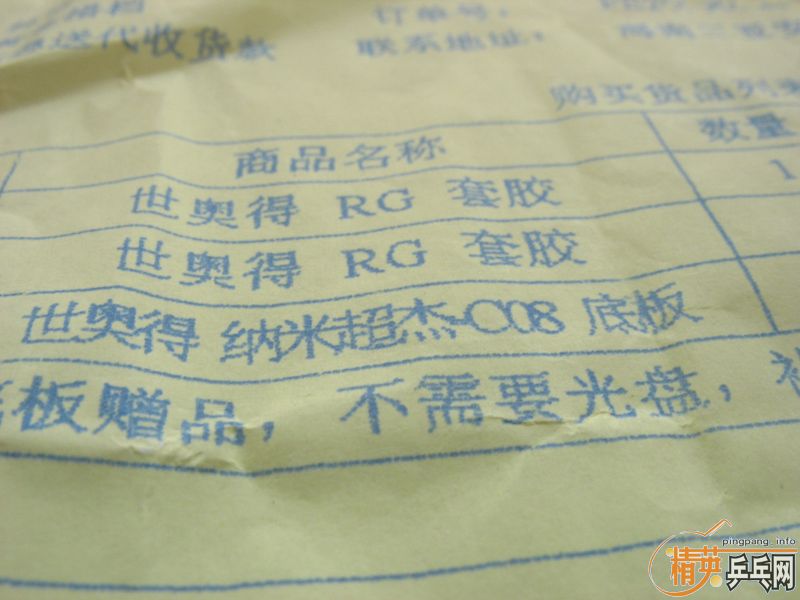 订单号：
送代收货款 联系地址：
购买货品列
商品名称 数量
世奥得 RG 套胶 1
世奥得 RG 套胶
世奥得 纳米超杰-C08 底板
板赠品，不需要光盘，
pingpang.info
精英乒乓网